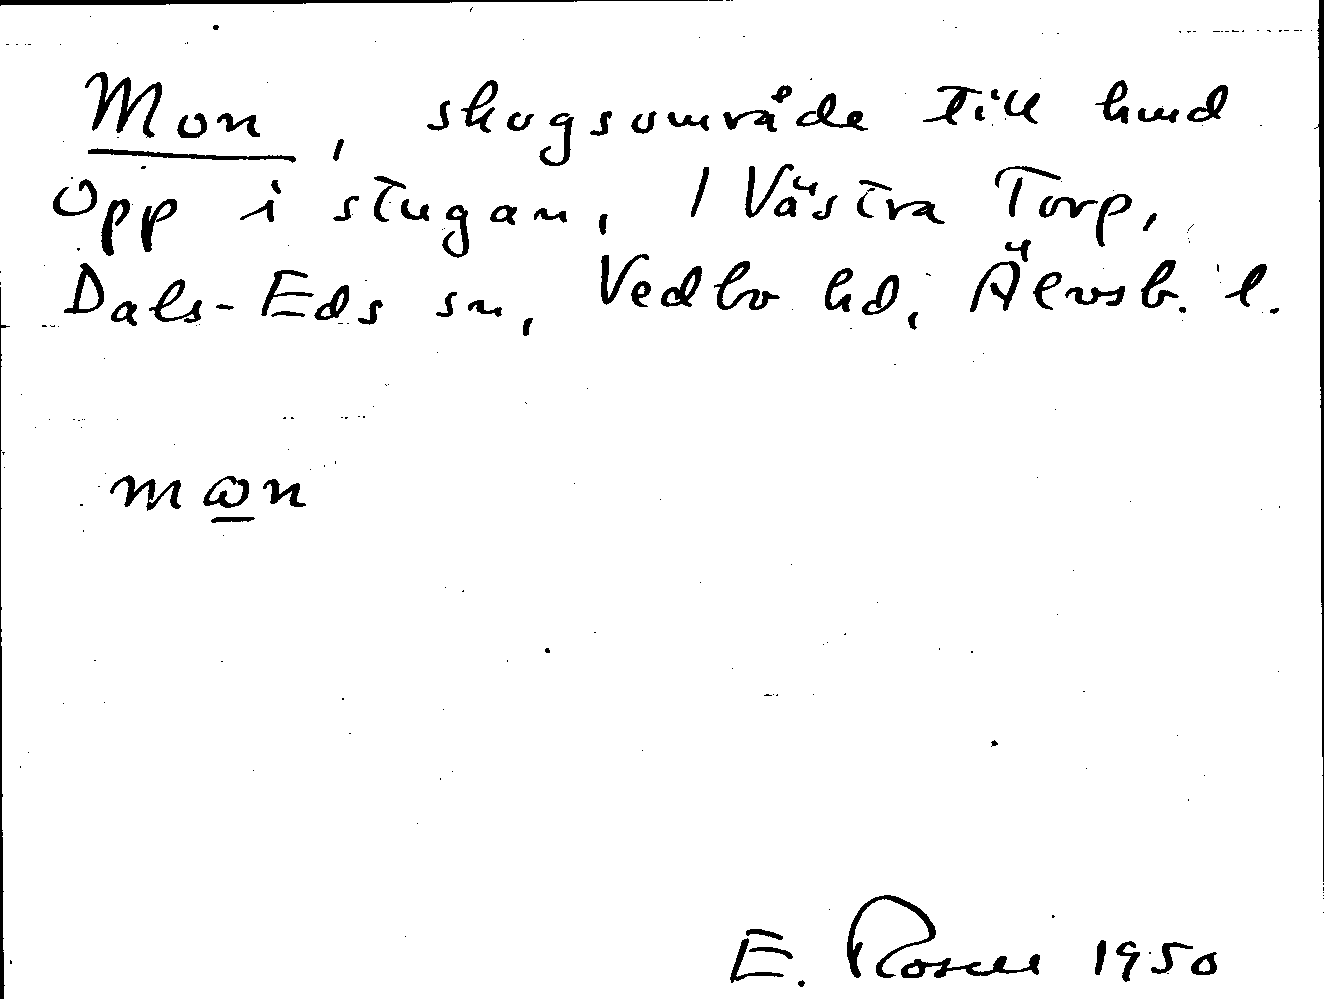 Mon, skogsområde till hmd
Opp i stugan, 1 Västra Torp,
Dals-Eds sn, Vedbo hd, Älvsb. l.
mωn
E. Rosell 1950